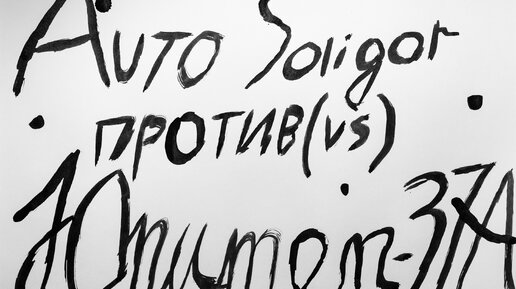 Auto Soligor
против(vs)
Юпитер-37А